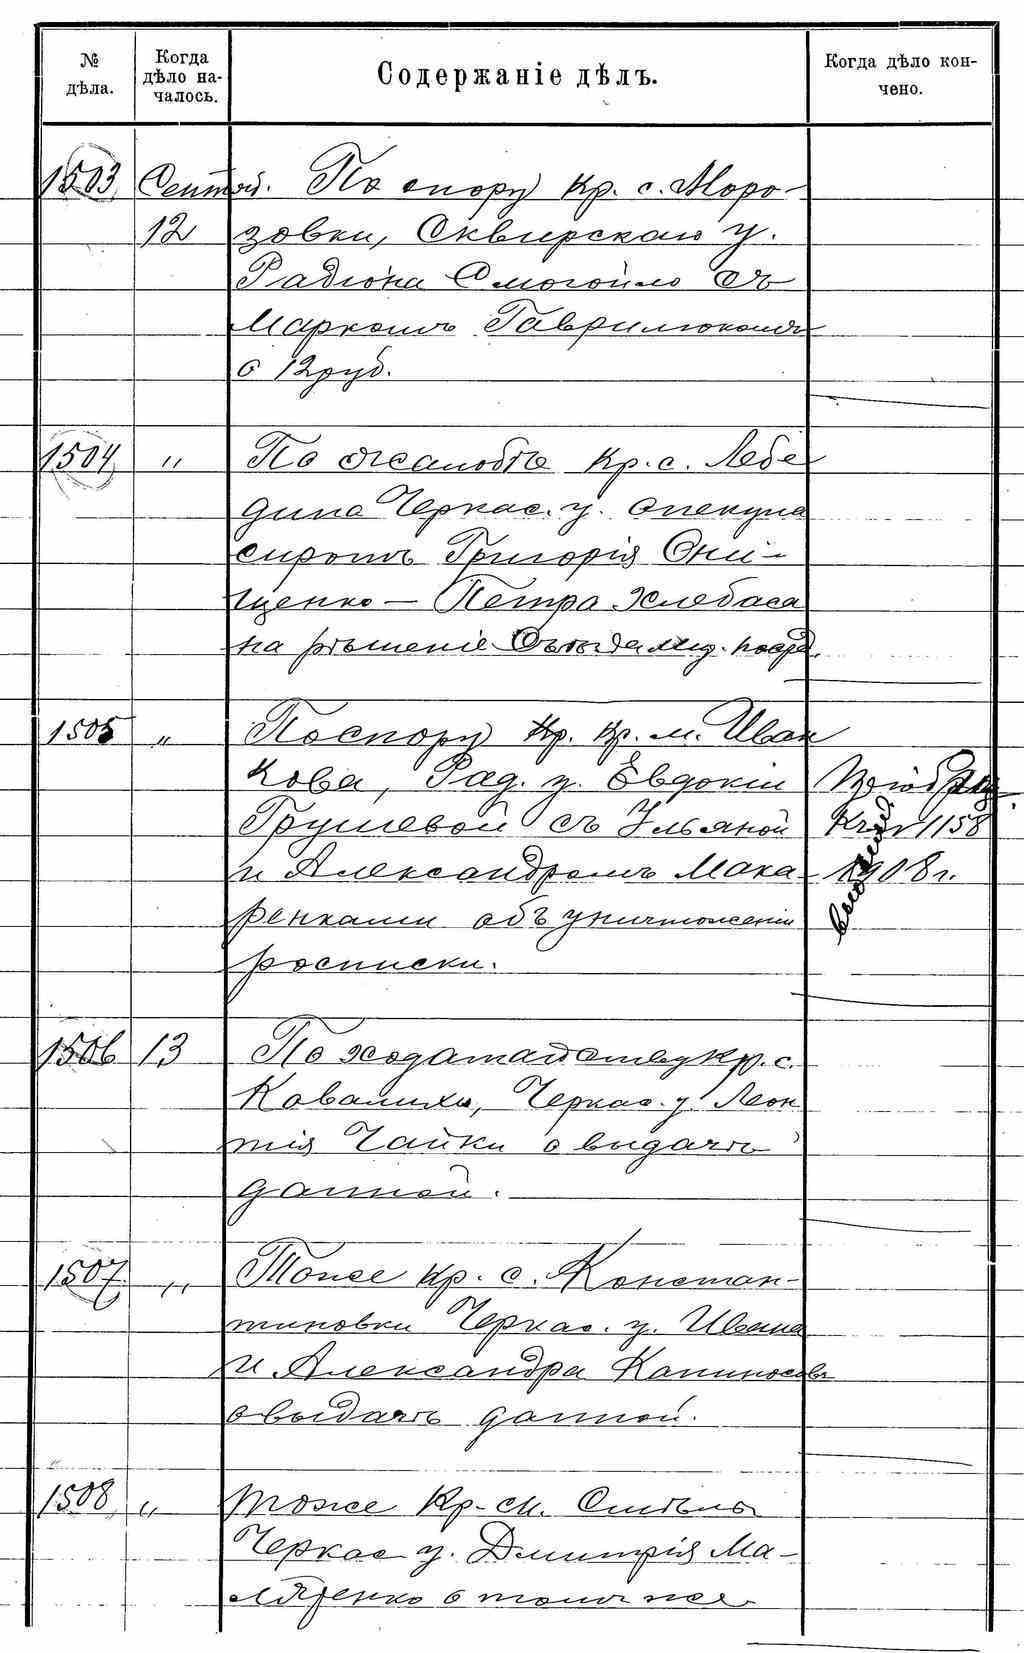 № дѣла.
Когда дѣло началось.
Содержаніе дѣлъ.
Когда дѣло кончено.
1503 Сентяб. По спору Кр. с. Моро-
12 зовки, Сквирскаго у.
Радіона Смогойло съ
Маркомъ Гаврилюкомъ
о 12 руб.
1504 " По жалобѣ Кр. с. Лебе
дина Черкас. у. опекуна
сиротъ Григорія Они-
щенко — Петра Хлебаса
на рѣшеніе Съѣзда мир. посред.
1505 " По спору Кр. м. Иван
кова, Рад. у. Евдокіи
Грушевой съ Ульяной № 1158
и Александромъ Мака- 1908 г.
ренками объ уничтоженіи
росписки.
1506 13 По ходатайству Кр. с.
Ковалихи, Черкас. у. Леон
тія Чайки о выдачѣ
данной.
1507 " Тоже Кр. с. Констан-
тиновки Черкас. у. Ивана
и Александра Капиносовъ
о выдачѣ данной.
1508 " тоже Кр. м. Смѣлы
Черкас у. Дмитрія Ма-
ляренко о томъ же